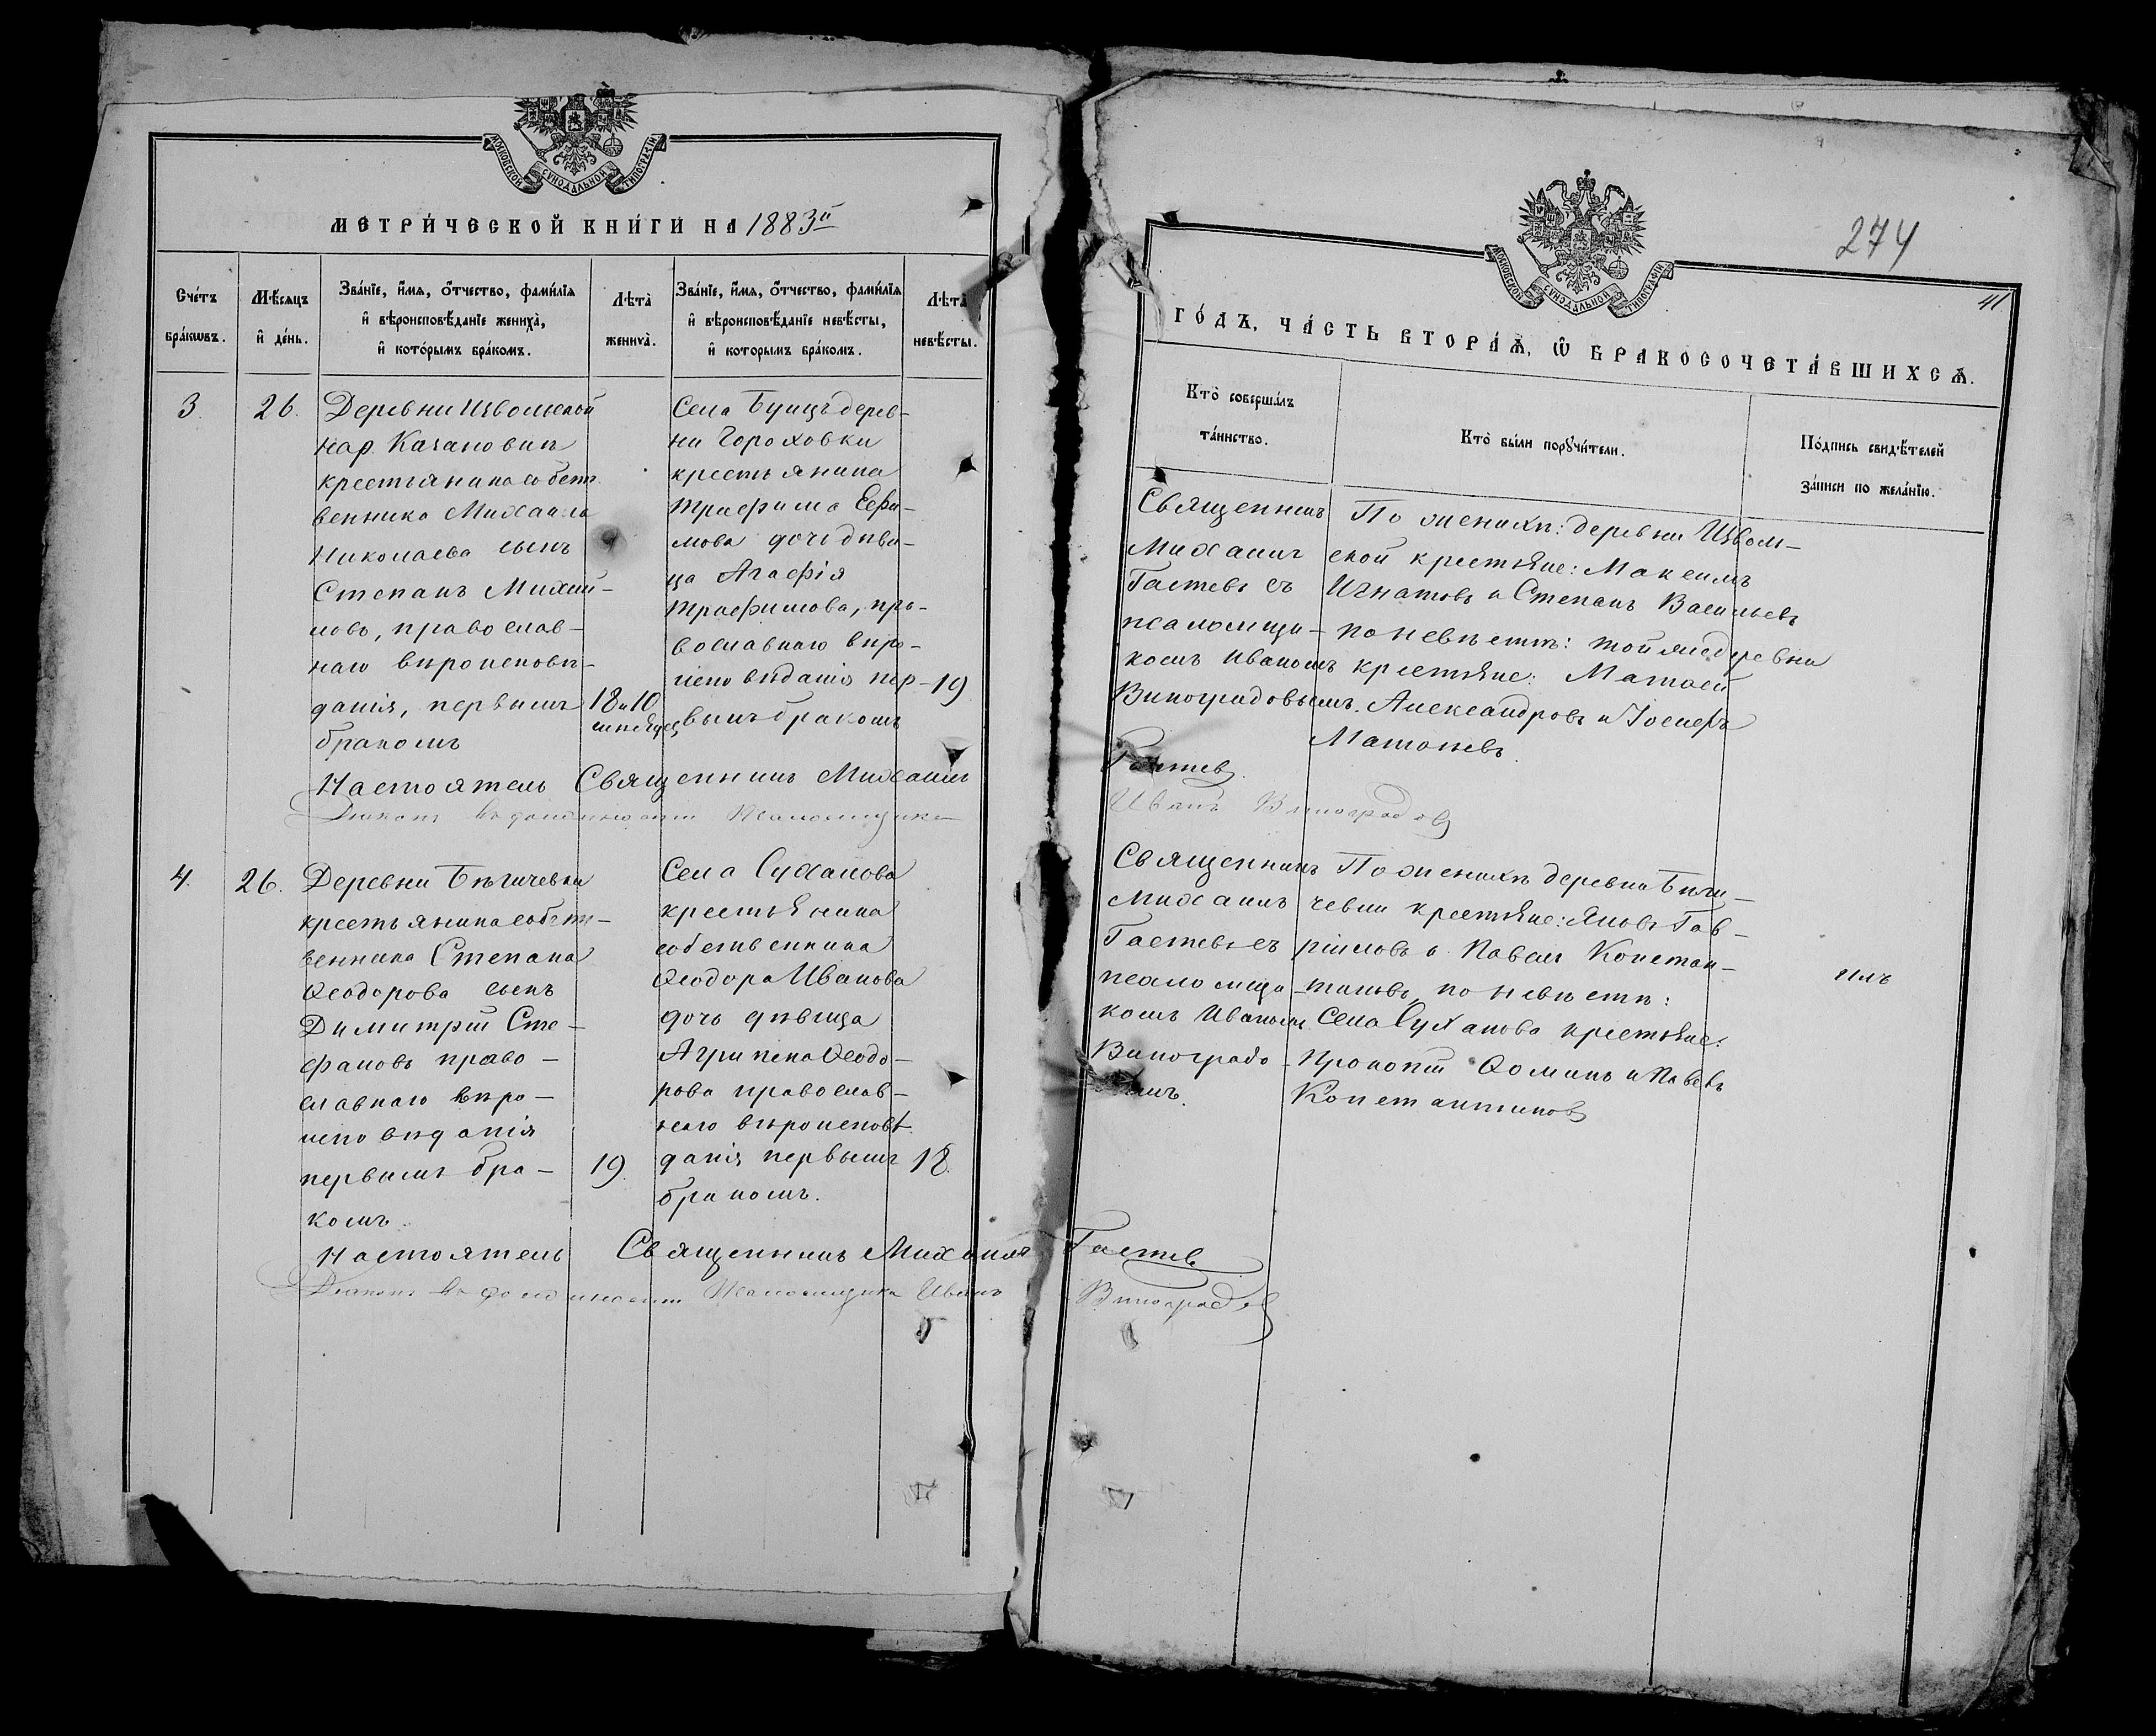 МОСКОВСКОЙ СѴНОДАЛЬНОЙ ТИПОГРАФІИ
МЕТРИ́ЧЕСКОЙ КНИ́ГИ НА 1883й
Сче́тъ бра́кωвъ.
Мѣ́сяцъ и҆ де́нь.
Зва́нїе, и҆́мѧ, ѻ҆́тчество, фами́лїѧ и҆ вѣроисповѣ́данїе жениха̀, и҆ кото́рымъ бра́комъ.
Лѣта̀ жениха̀.
Зва́нїе, и҆́мѧ, ѻ҆́тчество, фами́лїѧ и҆ вѣроисповѣ́данїе невѣ́сты, и҆ которымъ бра́комъ.
Лѣта̀ невѣ́сты.
3.
26.
Деревни Извольской
крестьянина собст
венника Михаила
Николаева сынъ
Степанъ Михай-
ловъ, православ-
наго вѣроисповѣ-
данія, первымъ
бракомъ
18 и 10
мѣсяцев
Села Буицъ дерев-
ни Гороховки
крестьянина
Трофима Ефи-
мова дочь дѣви-
ца Агафія
Трофимова, пра-
вославнаго вѣро-
исповѣданія пер-
вымъ бракомъ
19
Настоятель Священникъ Михаилъ
Діаконъ на должности Псаломщика
4.
26.
Деревни Бѣгичевки
крестьянина собст-
венника Степана
Ѳеодорова сынъ
Димитрій Сте-
фановъ право-
славнаго вѣро-
исповѣданія
первымъ бра-
комъ.
19.
Села Суханова
крестьянина
собственника
Ѳеодора Иванова
дочь дѣвица
Агрипена Ѳеодо-
рова православ-
наго вѣроисповѣ
данія первымъ
бракомъ.
18.
Настоятель Священникъ Михаилъ
Діаконъ на должности Псаломщика Иванъ
274
МОСКОВСКОЙ СѴНОДАЛЬНОЙ ТИПОГРАФІИ
ГО́ДЪ, ЧА́СТЬ ВТОРА́Ѧ, Ѡ҆ БРАКОСОЧЕТА́ВШИХСѦ.
Кто̀ соверша́лъ та́инство.
Кто̀ бы́ли порꙋчи́тели.
По́дпись свидѣ́телей за́писи по жела́нїю.
Священникъ
Михаилъ
Гастевъ съ
псаломщи-
комъ Иваномъ
Виноградовымъ.
По женихѣ: деревни Изволь-
ской крестьяне: Максимъ
Игнатовъ и Степанъ Васильевъ
по невѣстѣ: той же деревни
крестьяне: Матвей
Александровъ и Іосифъ
Гастев
Иванъ Виноградовъ
Священникъ
Михаилъ
Гастевъ съ
псаломщи-
комъ Иваномъ
Виноградо-
вымъ.
По женихѣ деревни Бѣги-
чевки крестьяне: Яковъ Гав-
риловъ и Павелъ Констан-
тиновъ, по невѣстѣ:
Села Суханова крестьяне:
Прокопій Ѳоминъ и Павелъ
Константиновъ
Гастевъ
Виноградовъ